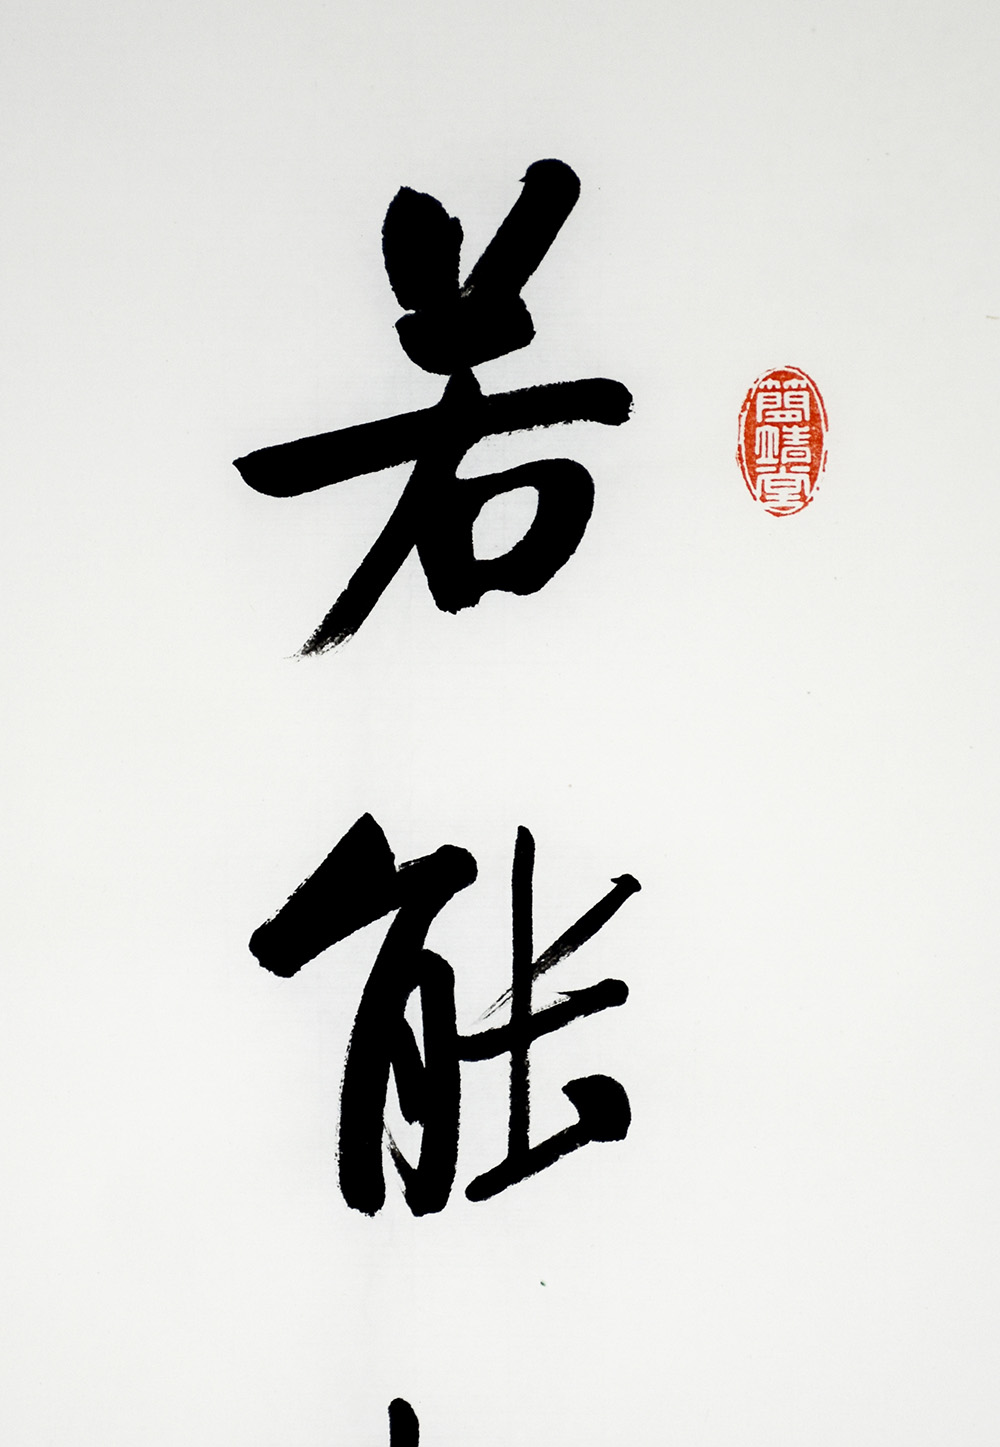 若能
簡靖堂